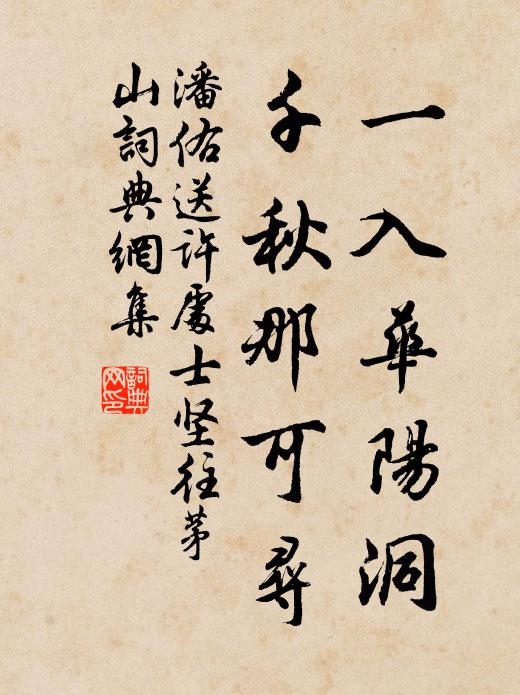 一入華陽洞
千秋那可尋
潘佑送許處士坚往茅
山詞典網集
詞典
网印